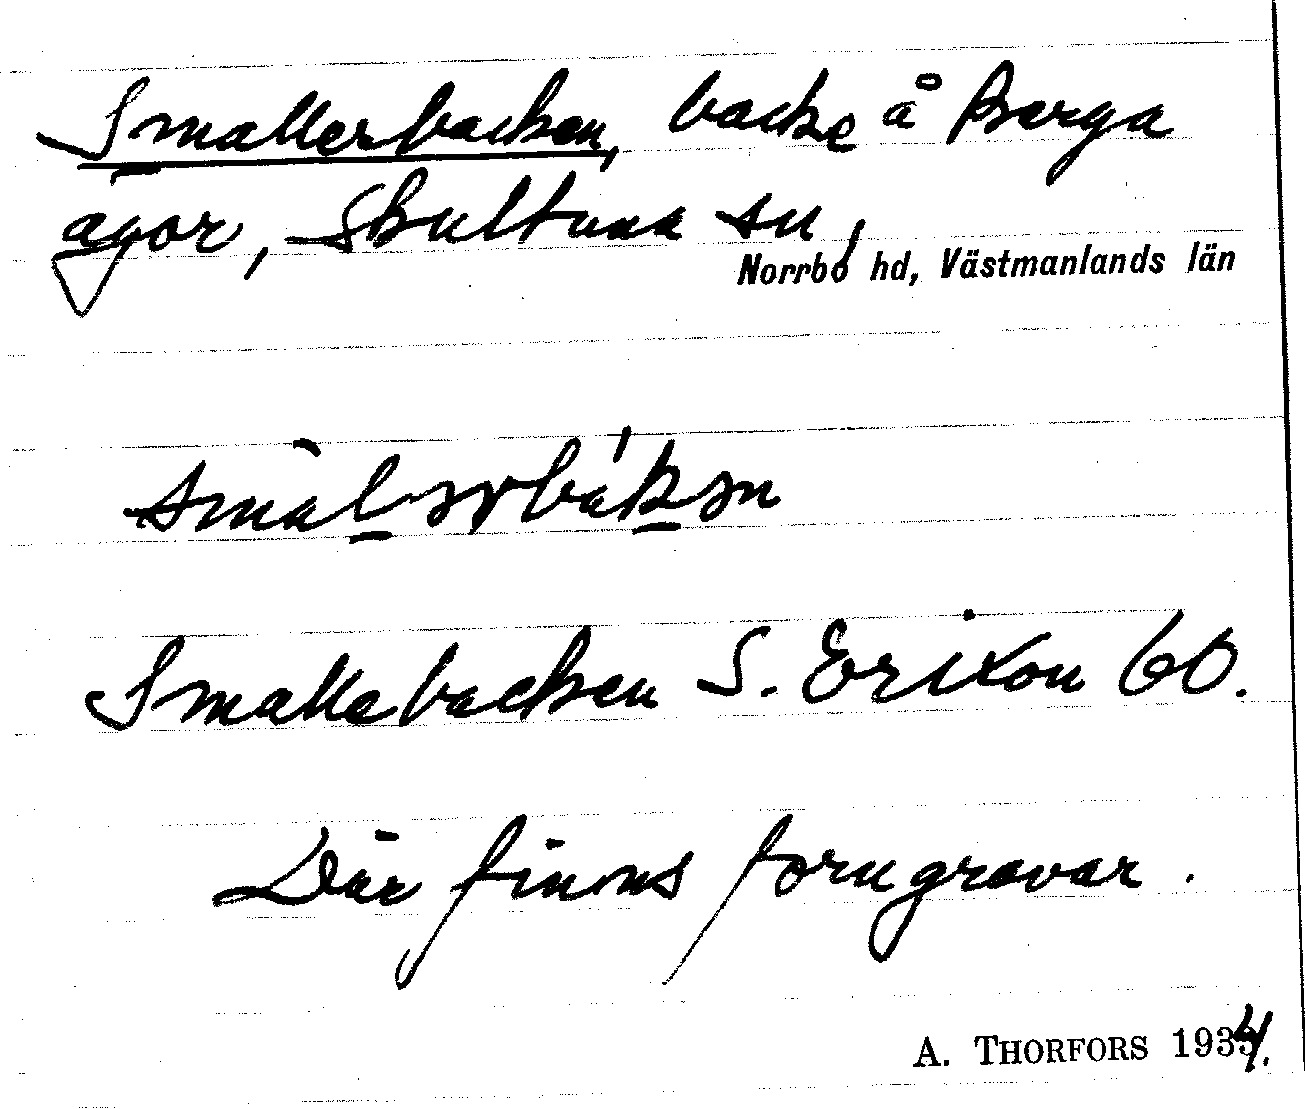 Smallerbacken, backe å Berga
ägor, Skultuna sn,
Norrbo hd, Västmanlands län
Smallebacken S. Erixon 60.
Där finns forngravar.
A. THORFORS 1934.